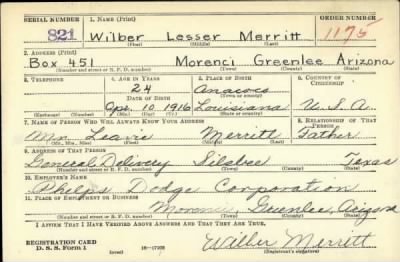 SERIAL NUMBER 1. NAME (Print) ORDER NUMBER
821 Wilber Lesser Merritt 1175
(First) (Middle) (Last)
2. ADDRESS (Print)
Box 451 Morenci Greenlee Arizona
(Number and street or R. F. D. number) (Town) (County) (State)
3. TELEPHONE 4. AGE IN YEARS 5. PLACE OF BIRTH 6. COUNTRY OF CITIZENSHIP
24 Anacoco
DATE OF BIRTH (Town or county)
Apr. 10 1916 Louisiana U.S.A.
(Exchange) (Number) (Mo.) (Day) (Yr.) (State or country)
7. NAME OF PERSON WHO WILL ALWAYS KNOW YOUR ADDRESS 8. RELATIONSHIP OF THAT PERSON
Mr. Merritt Father
(Mr., Mrs., Miss) (First) (Middle) (Last)
9. ADDRESS OF THAT PERSON
General Delivery Silsbee Texas
(Number and street or R. F. D. number) (Town) (County) (State)
10. EMPLOYER'S NAME
Phelps Dodge Corporation
11. PLACE OF EMPLOYMENT OR BUSINESS
Morenci, Greenlee, Arizona
(Number and street or R. F. D. number) (Town) (County) (State)
I AFFIRM THAT I HAVE VERIFIED ABOVE ANSWERS AND THAT THEY ARE TRUE.
REGISTRATION CARD
D. S. S. Form 1 (over) 16—17105 Wilber Merritt
(Registrant's signature)